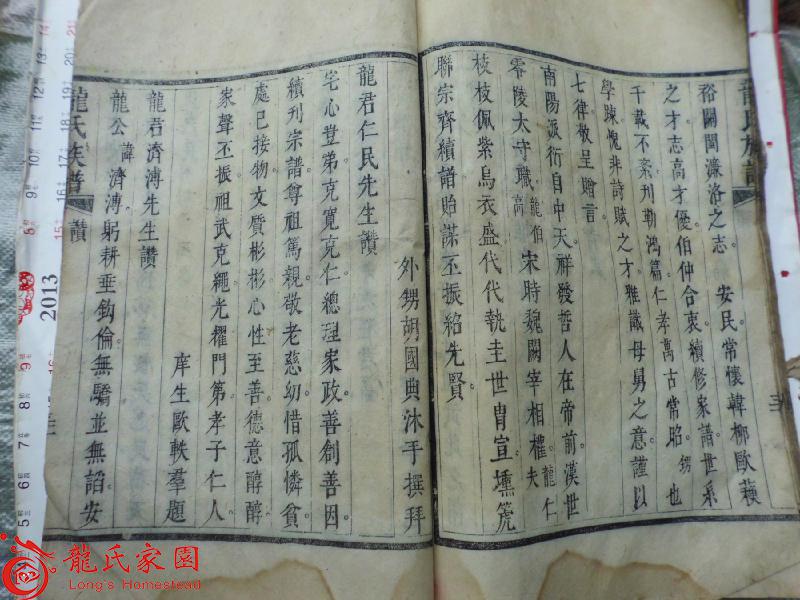 裕關閩濂洛之志。安民常懷韓柳歐蘇
之才志高才優伯仲合衷續修家譜世系
千載不紊刋勒鴻篇仁孝萬古常昭。甥也
學疎愧非詩賦之才雅識母舅之意謹以
七律敬呈贈言。
南陽派衍自中天祥發哲人在帝前漢世
零陵太守職龍伯高宋時魏闕宰相權龍仁夫
枝枝佩紫烏衣盛代代執圭世冑宣壎箎
聯宗齊續譜貽謀丕振紹先賢
外甥胡國典沐手撰拜
龍君仁民先生讚
宅心豈弟克寬克仁總理家政善創善因
續刋宗譜尊祖篤親敬老慈幼惜孤憐貧
處已接物文質彬彬心性至善德意醇醇
家聲丕振祖武克繩光耀門第孝子仁人
庠生歐軼羣題
龍君濟溥先生讚
龍公諱濟溥躬耕垂鈎倫無驕並無諂安
龍氏族譜 讚
龍氏族譜
龍氏家園
Long's Homestead
2013